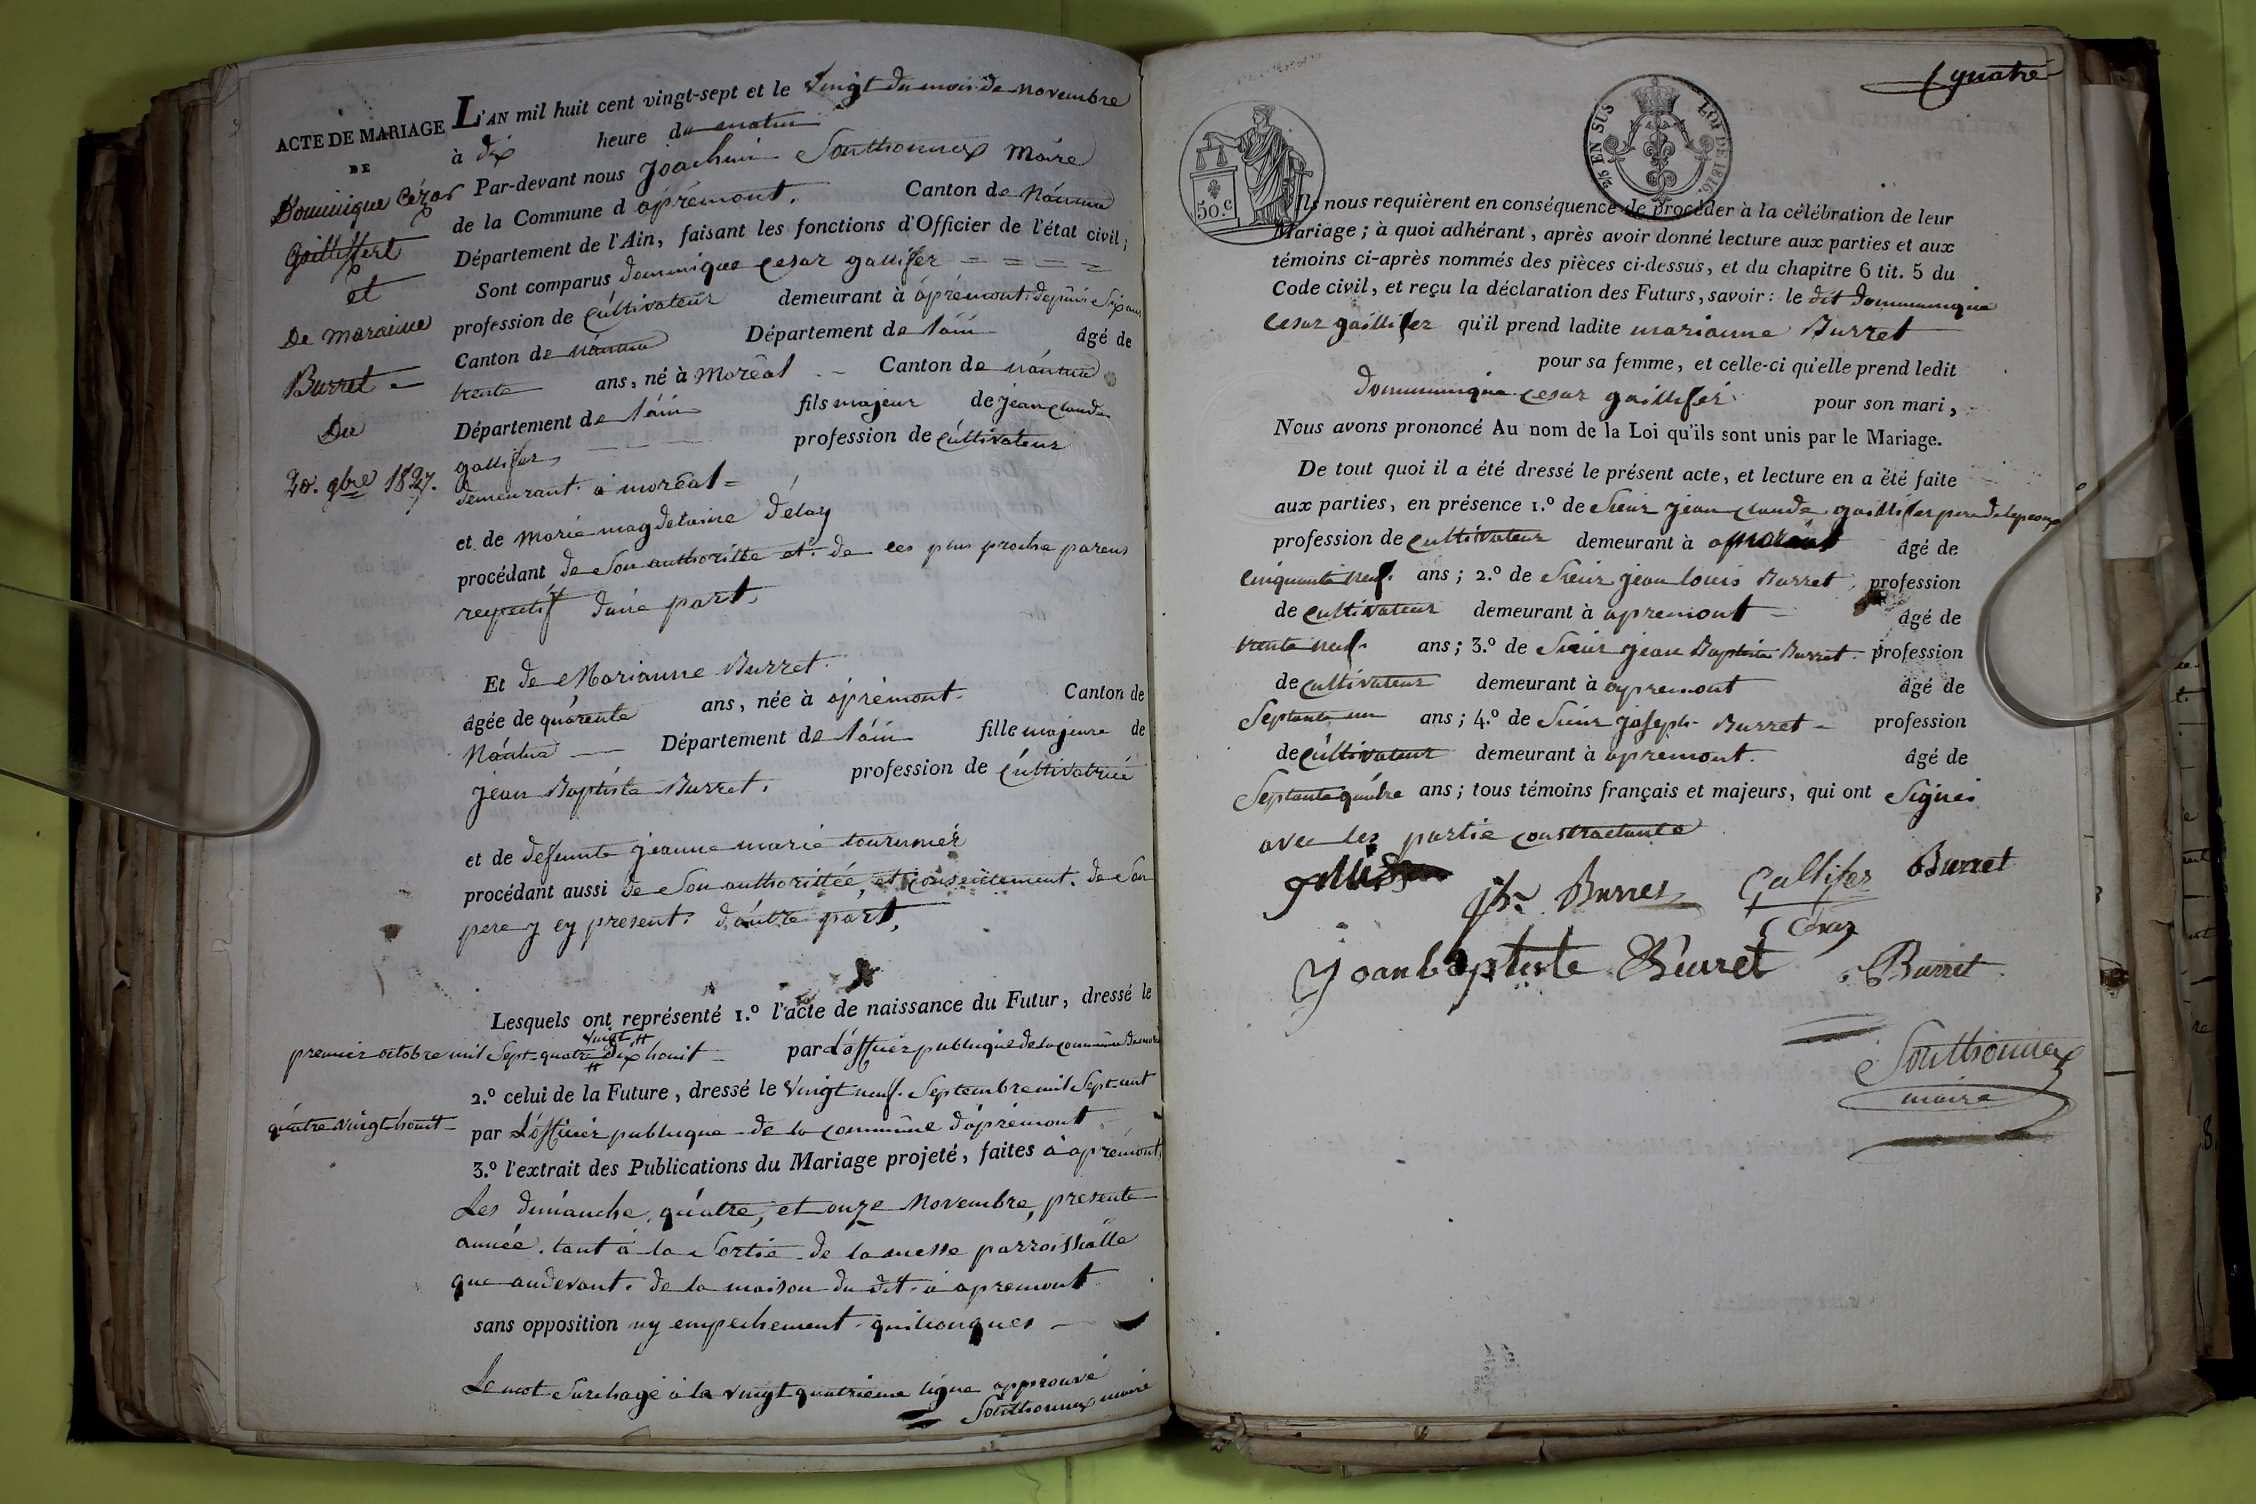 ACTE DE MARIAGE
DE
Dominique Cézar
Gailliffert
et
De maraine
Burret
Du
20. 9bre 1827.
L'AN mil huit cent vingt-sept et le vingt du mois de novembre
à dix heure du matin
Par-devant nous Joachim Southonnax Maire
de la Commune d'apremont. Canton de Nantua
Département de l'Ain, faisant les fonctions d'Officier de l'état civil;
Sont comparus dominique cesar gallifer
profession de cultivateur demeurant à apremont depuis six ans
Canton de nantua Département de l'ain âgé de
trente ans, né à Moréal Canton de nantua
Département de l'ain fils majeur de jean claude
gallifer, profession de cultivateur
demeurant a moréal
et de marie magdelaine delay
procédant de son authoritte et de ces plus proche parens
respectif d'une part,
Et de Marianne Burret
âgée de quarente ans, née à apremont. Canton de
Nantua Département de l'ain fille majeure de
jean Baptiste Burret, profession de cultivatrice
et de defeunte jeanne marie tournier
procédant aussi de son authorittée, et consentement de son
pere y ey present. d'autre part,
Lesquels ont représenté 1.º l'acte de naissance du Futur, dressé le
vingt
premier octobre mil sept quatre dix houit par l'officier publique de la commune de
2.º celui de la Future, dressé le vingt neuf Septembre mil Sept cent
quatre vingt houit par L'officier publique de la commune d'apremont
3.º l'extrait des Publications du Mariage projeté, faites à apremont,
Les dimanche, quatre, et onze Novembre, presente
année, tant à la sortie de la messe parroissialle
que au devant de la maison du dit à apremont
sans opposition ny empechement quelconques
Le mot Surchagé à la vingt quatrieme ligne approuvé
Southonnax maire
quatre
5/2 EN SUS LOI DE 1816.
50.c
Ils nous requièrent en conséquence de procéder à la célébration de leur
Mariage; à quoi adhérant, après avoir donné lecture aux parties et aux
témoins ci-après nommés des pièces ci-dessus, et du chapitre 6 tit. 5 du
Code civil, et reçu la déclaration des Futurs, savoir: le dit dommunique
cesar gaillifer qu'il prend ladite marianne Burret
pour sa femme, et celle-ci qu'elle prend ledit
dommunique cesar gaillifer pour son mari,
Nous avons prononcé Au nom de la Loi qu'ils sont unis par le Mariage.
De tout quoi il a été dressé le présent acte, et lecture en a été faite
aux parties, en présence 1.º de Sieur jean claude gaillifer pere de lepoux
profession de cultivateur demeurant à âgé de
cinquante neuf ans; 2.º de Sieur jean louis Burret, profession
de cultivateur demeurant à apremont âgé de
trente neuf ans; 3.º de Sieur jean Baptiste Burret profession
de cultivateur demeurant à apremont âgé de
Septante un ans; 4.º de Sieur joseph Burret profession
de cultivateur demeurant à apremont. âgé de
Septante quatre ans; tous témoins français et majeurs, qui ont signés
avec les partie constractante
Burret Gallifer Burret
Cézar
Joanbaptiste Beurret Burret
Southonnax
maire